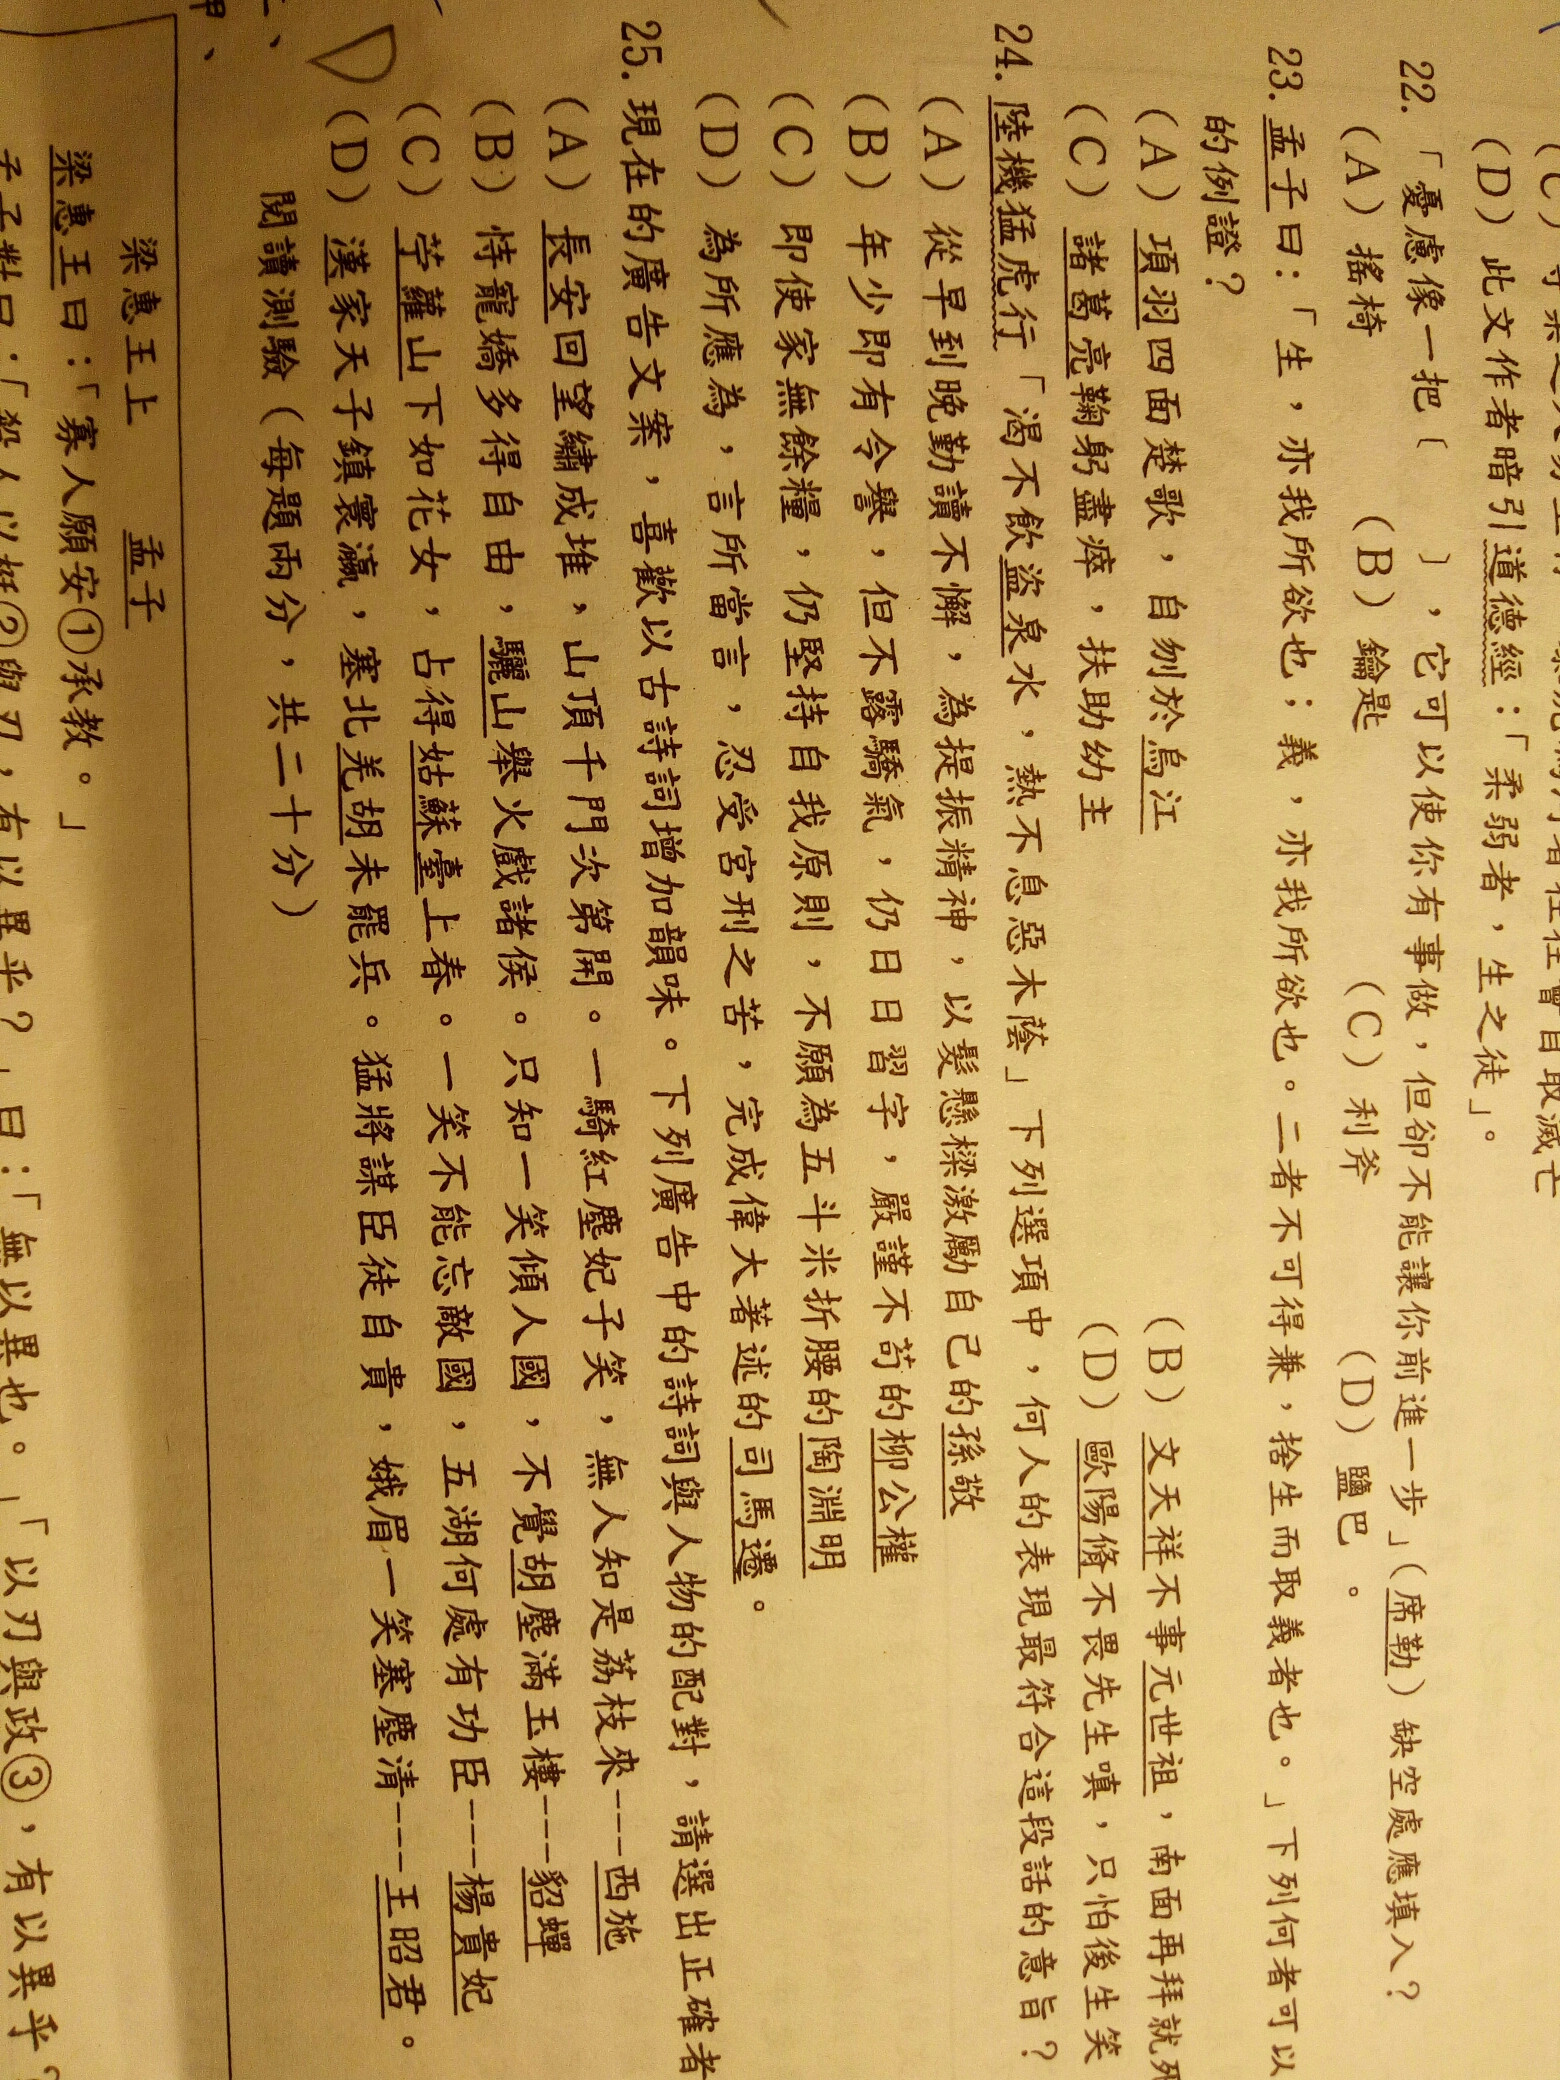 (D) 此文作者暗引道德經：「柔弱者，生之徒」。
22. 「憂慮像一把〔　　〕，它可以使你有事做，但卻不能讓你前進一步」(席勒) 缺空處應填入？
(A) 搖椅　(B) 鑰匙　(C) 利斧　(D) 鹽巴 。
23. 孟子曰：「生，亦我所欲也；義，亦我所欲也。二者不可得兼，捨生而取義者也。」下列何者可以
的例證？
(A) 項羽四面楚歌，自刎於烏江　(B) 文天祥不事元世祖，南面再拜就死
(C) 諸葛亮鞠躬盡瘁，扶助幼主　(D) 歐陽脩不畏先生嗔，只怕後生笑
24. 陸機猛虎行「渴不飲盜泉水，熱不息惡木蔭」下列選項中，何人的表現最符合這段話的意旨？
(A) 從早到晚勤讀不懈，為提振精神，以髮懸樑激勵自己的孫敬
(B) 年少即有令譽，但不露驕氣，仍日日習字，嚴謹不苟的柳公權
(C) 即使家無餘糧，仍堅持自我原則，不願為五斗米折腰的陶淵明
(D) 為所應為，言所當言，忍受宮刑之苦，完成偉大著述的司馬遷。
25. 現在的廣告文案，喜歡以古詩詞增加韻味。下列廣告中的詩詞與人物的配對，請選出正確者
(A) 長安回望繡成堆，山頂千門次第開。一騎紅塵妃子笑，無人知是荔枝來---西施
(B) 恃寵嬌多得自由，驪山舉火戲諸侯。只知一笑傾人國，不覺胡塵滿玉樓---貂蟬
(C) 苧蘿山下如花女，占得姑蘇臺上春。一笑不能忘敵國，五湖何處有功臣---楊貴妃
D (D) 漢家天子鎮寰瀛，塞北羌胡未罷兵。猛將謀臣徒自貴，娥眉一笑塞塵清---王昭君。
閱讀測驗（每題兩分，共二十分）
梁惠王上　孟子
梁惠王曰：「寡人願安①承教。」
孟子對曰：「殺人以梃②與刃，有以異乎？」曰：「無以異也。」「以刃與政③，有以異乎？